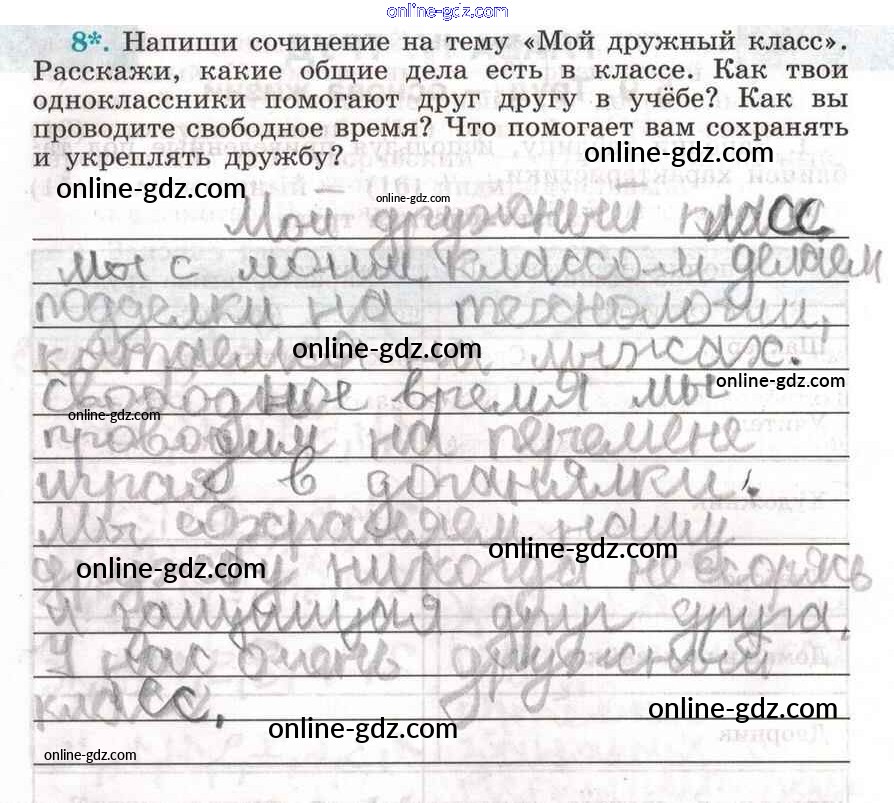 online-gdz.com
8*. Напиши сочинение на тему «Мой дружный класс».
Расскажи, какие общие дела есть в классе. Как твои
одноклассники помогают друг другу в учёбе? Как вы
проводите свободное время? Что помогает вам сохранять
и укреплять дружбу?
online-gdz.com
online-gdz.com
online-gdz.com
Мой дружный класс
мы с моим классом делаем
подделки на технологии,
катаемся на лыжах.
online-gdz.com
Свободное время мы
online-gdz.com
online-gdz.com
проводим на перемене
играя в догонялки.
Мы сохраняем нашу
online-gdz.com
дружбу никогда не сорясь
online-gdz.com
и защищая друг друга,
У нас очень дружный
класс,
online-gdz.com
online-gdz.com
online-gdz.com